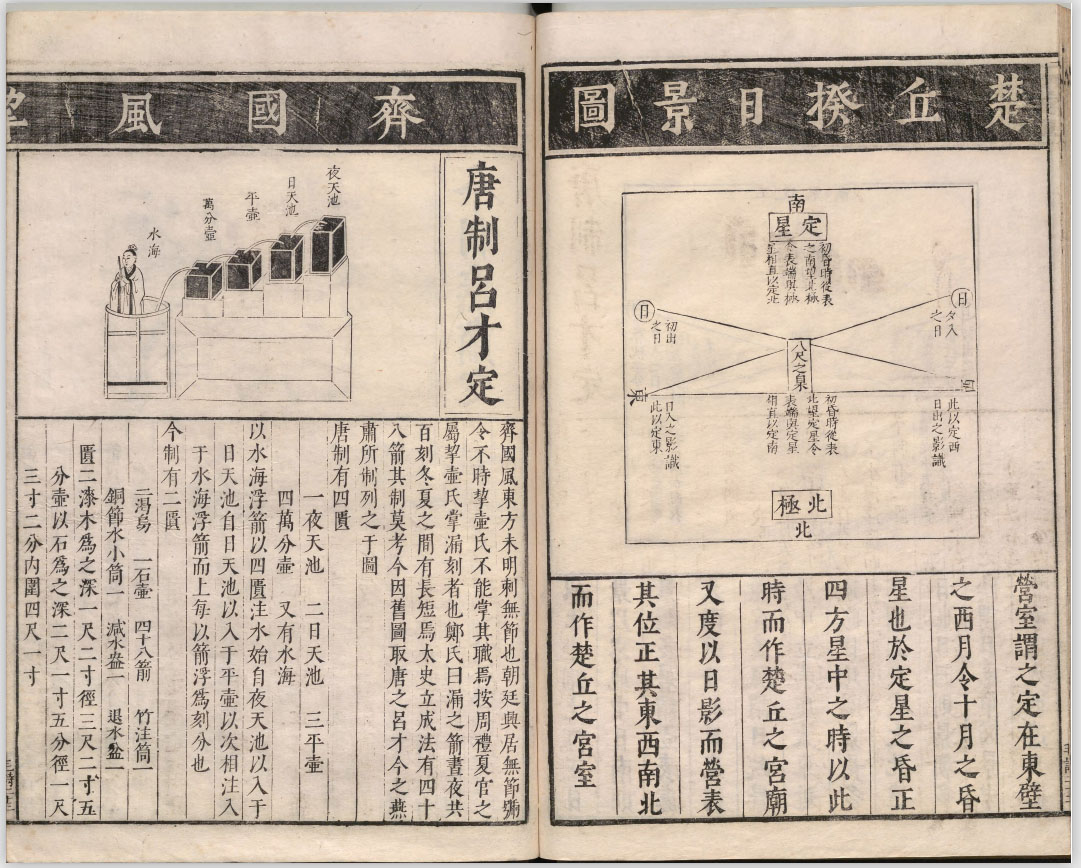 楚丘揆日景圖
南
定星
初昏時從表
之南望北極
令表端與極
正相直以定北
日
夕入
之日
日
初出
之日
八尺之臬
西
此以定西
日出之影識
初昏時從表
北望定星令
表端與定星
相直以定南
東
日入之影識
此以定東
北極
北
營室謂之定在東壁
之西月令十月之昏
星也於定星之昏正
四方星中之時以此
時而作楚丘之宮廟
又度以日影而營表
其位正其東西南北
而作楚丘之宮室
齊國風
唐制呂才定
夜天池
日天池
平壺
萬分壺
水海
齊國風東方未明刺無節也朝廷興居無節號
令不時挈壺氏不能掌其職焉按周禮夏官之
屬挈壺氏掌漏刻者也鄭氏曰漏之箭晝夜共
百刻冬夏之間有長短焉太史立成法有四十
八箭其制莫考今因舊圖取唐之呂才今之燕
肅所制列之于圖
唐制有四匱
一夜天池　二日天池　三平壺
四萬分壺　又有水海
以水海浮箭以四匱注水始自夜天池以入于
日天池自日天池以入于平壺以次相注入
于水海浮箭而上每以箭浮爲刻分也
今制有二匱
二渴烏　一石壺　四十八箭　竹注筒一
銅節水小筒一　減水盎一　退水盆一
匱二漆木爲之深一尺二寸徑三尺二寸五
分壺以石爲之深二尺一寸五分徑一尺
三寸二分内圍四尺一寸